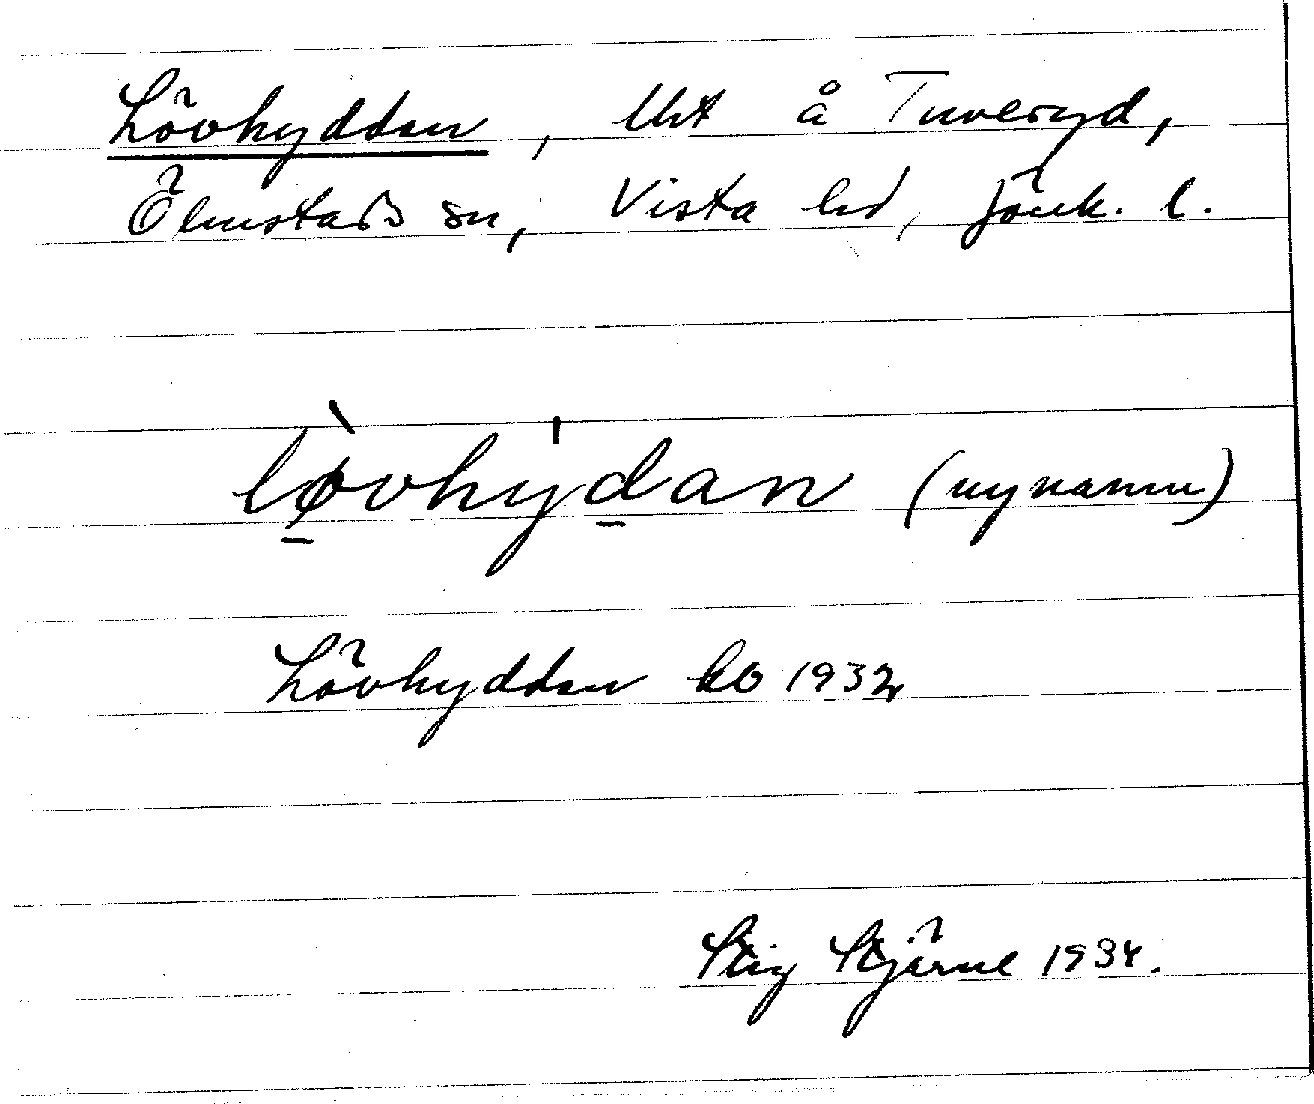 Lövhyddan, lht å Tuveryd,
Ölmstads sn, Vista hd, Jönk. l.
lø̠̀vhy̍d̠an (nynamn)
Lövhyddan ko 1932
Stig Stjärne 1934.